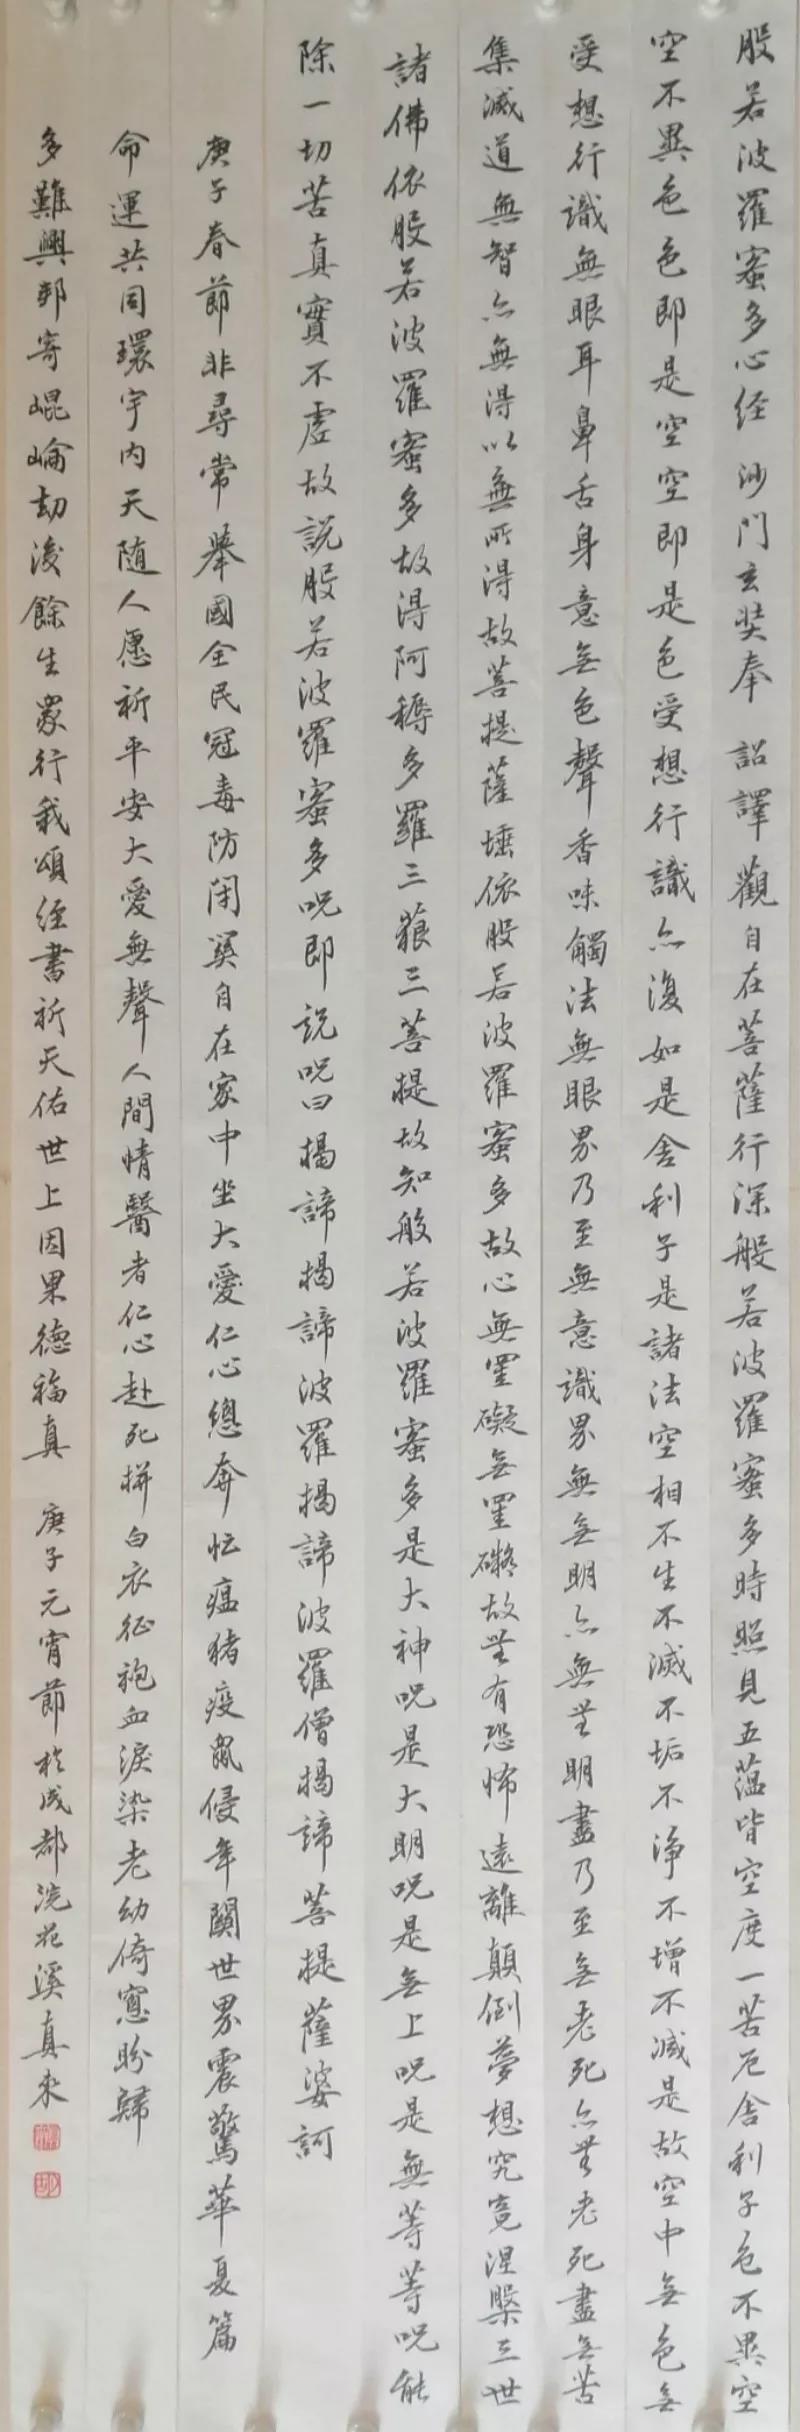 股若波羅蜜多心经 沙門玄奘奉 詔譯 觀自在菩薩行深般若波羅蜜多時照見五蕴皆空度一苦厄舍利子色不異空
空不異色色即是空空即是色受想行識亦復如是舍利子是諸法空相不生不滅不垢不淨不增不減是故空中無色無
受想行識無眼耳鼻舌身意無色聲香味觸法無眼界乃至無意識界無無明亦無無明盡乃至無老死亦無老死盡無苦
集滅道無智亦無得以無所得故菩提薩埵依股若波羅蜜多故心無罣礙無罣礙故無有恐怖遠離顛倒夢想究竟涅槃三世
諸佛依股若波羅蜜多故得阿耨多羅三藐三菩提故知般若波羅蜜多是大神呪是大明呪是無上呪是無等等呪能
除一切苦真實不虛故說股若波羅蜜多呪即説呪曰揭諦揭諦波羅揭諦波羅僧揭諦菩提薩婆訶
庚子春節非尋常舉國全民冠毒防閉關自在家中坐大愛仁心總奔忙瘟猪疫鼠侵年關世界震驚華夏篇
命運共同環宇内天随人愿祈平安大愛無聲人間情醫者仁心赴死拼白衣征袍血淚染老幼倚窗盼歸
多難興邦寄崐崘劫後餘生眾行我頌经書祈天佑世上因果德福真 庚子元宵節於成都浣花溪真来